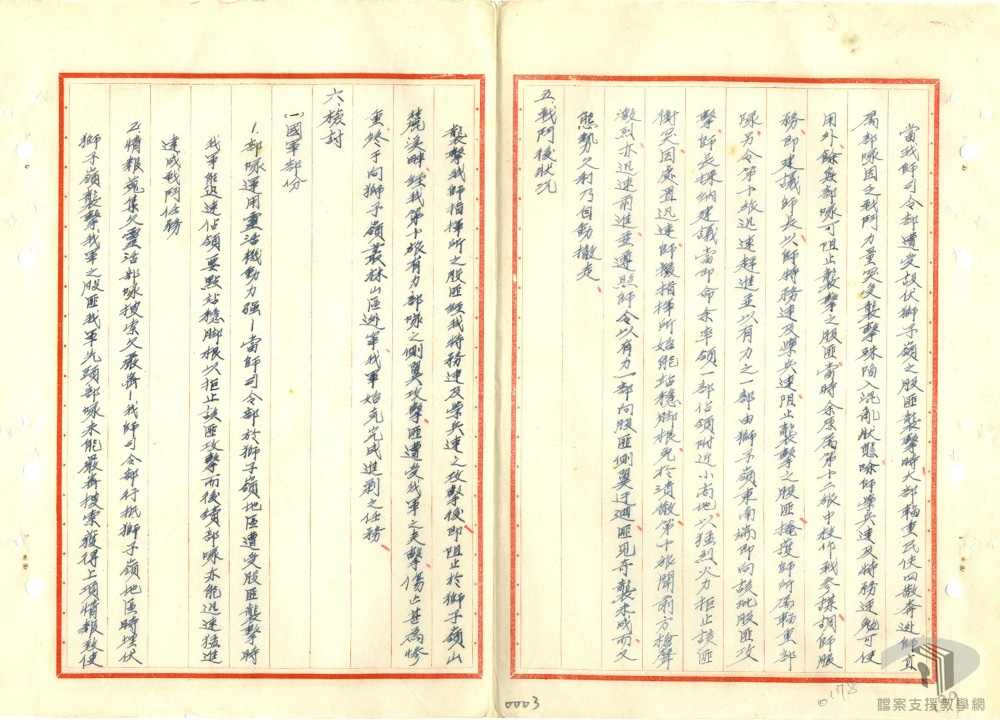 當我師司令部遭受敌伏獅子嶺之股匪襲擊時大部輜重民伕四散奔逃師直
屬部隊因之戰鬥力量突受襲擊陷入混亂狀態除師學兵連及特務連勉可使
用外餘無部隊可阻止襲擊之股匪當時余原屬第十二旅中校作戰参謀調師服
務即建議師長以師特務連及學兵連阻止襲擊之股匪掩護師所属輜重部
隊另令第十旅迅速趕進並以有力之一部由獅子嶺東南端即向該批股匪攻
擊師長採納建議當即命余率領一部佔領附近小高地以猛烈火力拒止該匪
衝突因處置迅速師長指揮所始能站穩脚根免於潰散第十旅聞前方槍聲
激烈亦迅速前進並遵照師令以有力一部向股匪側翼迂迴匪見奇襲未成而又
態勢欠利乃自動撤走
五、戰鬥後狀況
襲擊我師指揮所之股匪經我特務連及學兵連之攻擊後即阻止於獅子嶺山
麓溪畔經我第十旅有力部隊之側翼攻擊匪遭受我軍之夾擊傷亡甚為慘
重終于向獅子嶺叢林山區逃竄我軍始克完成進剿之任務
六、檢討
(一)國軍部份
1.部隊運用靈活機動力强—當師司令部於獅子嶺地區遭受股匪襲擊時
我軍能迅速佔領要點站穩脚根以拒止該匪攻擊而後續部隊亦能迅速猛進
達成戰鬥任務
2.情報蒐集欠靈活部隊搜索欠嚴密—我師司令部行抵獅子嶺地區時埋伏
獅子嶺襲擊我軍之股匪我軍先頭部隊未能嚴密搜索獲得上項情報致使
0003
0178
檔案支援教學網